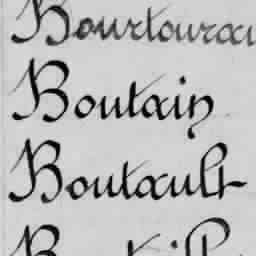 Bourtourau
Boutain
Boutault